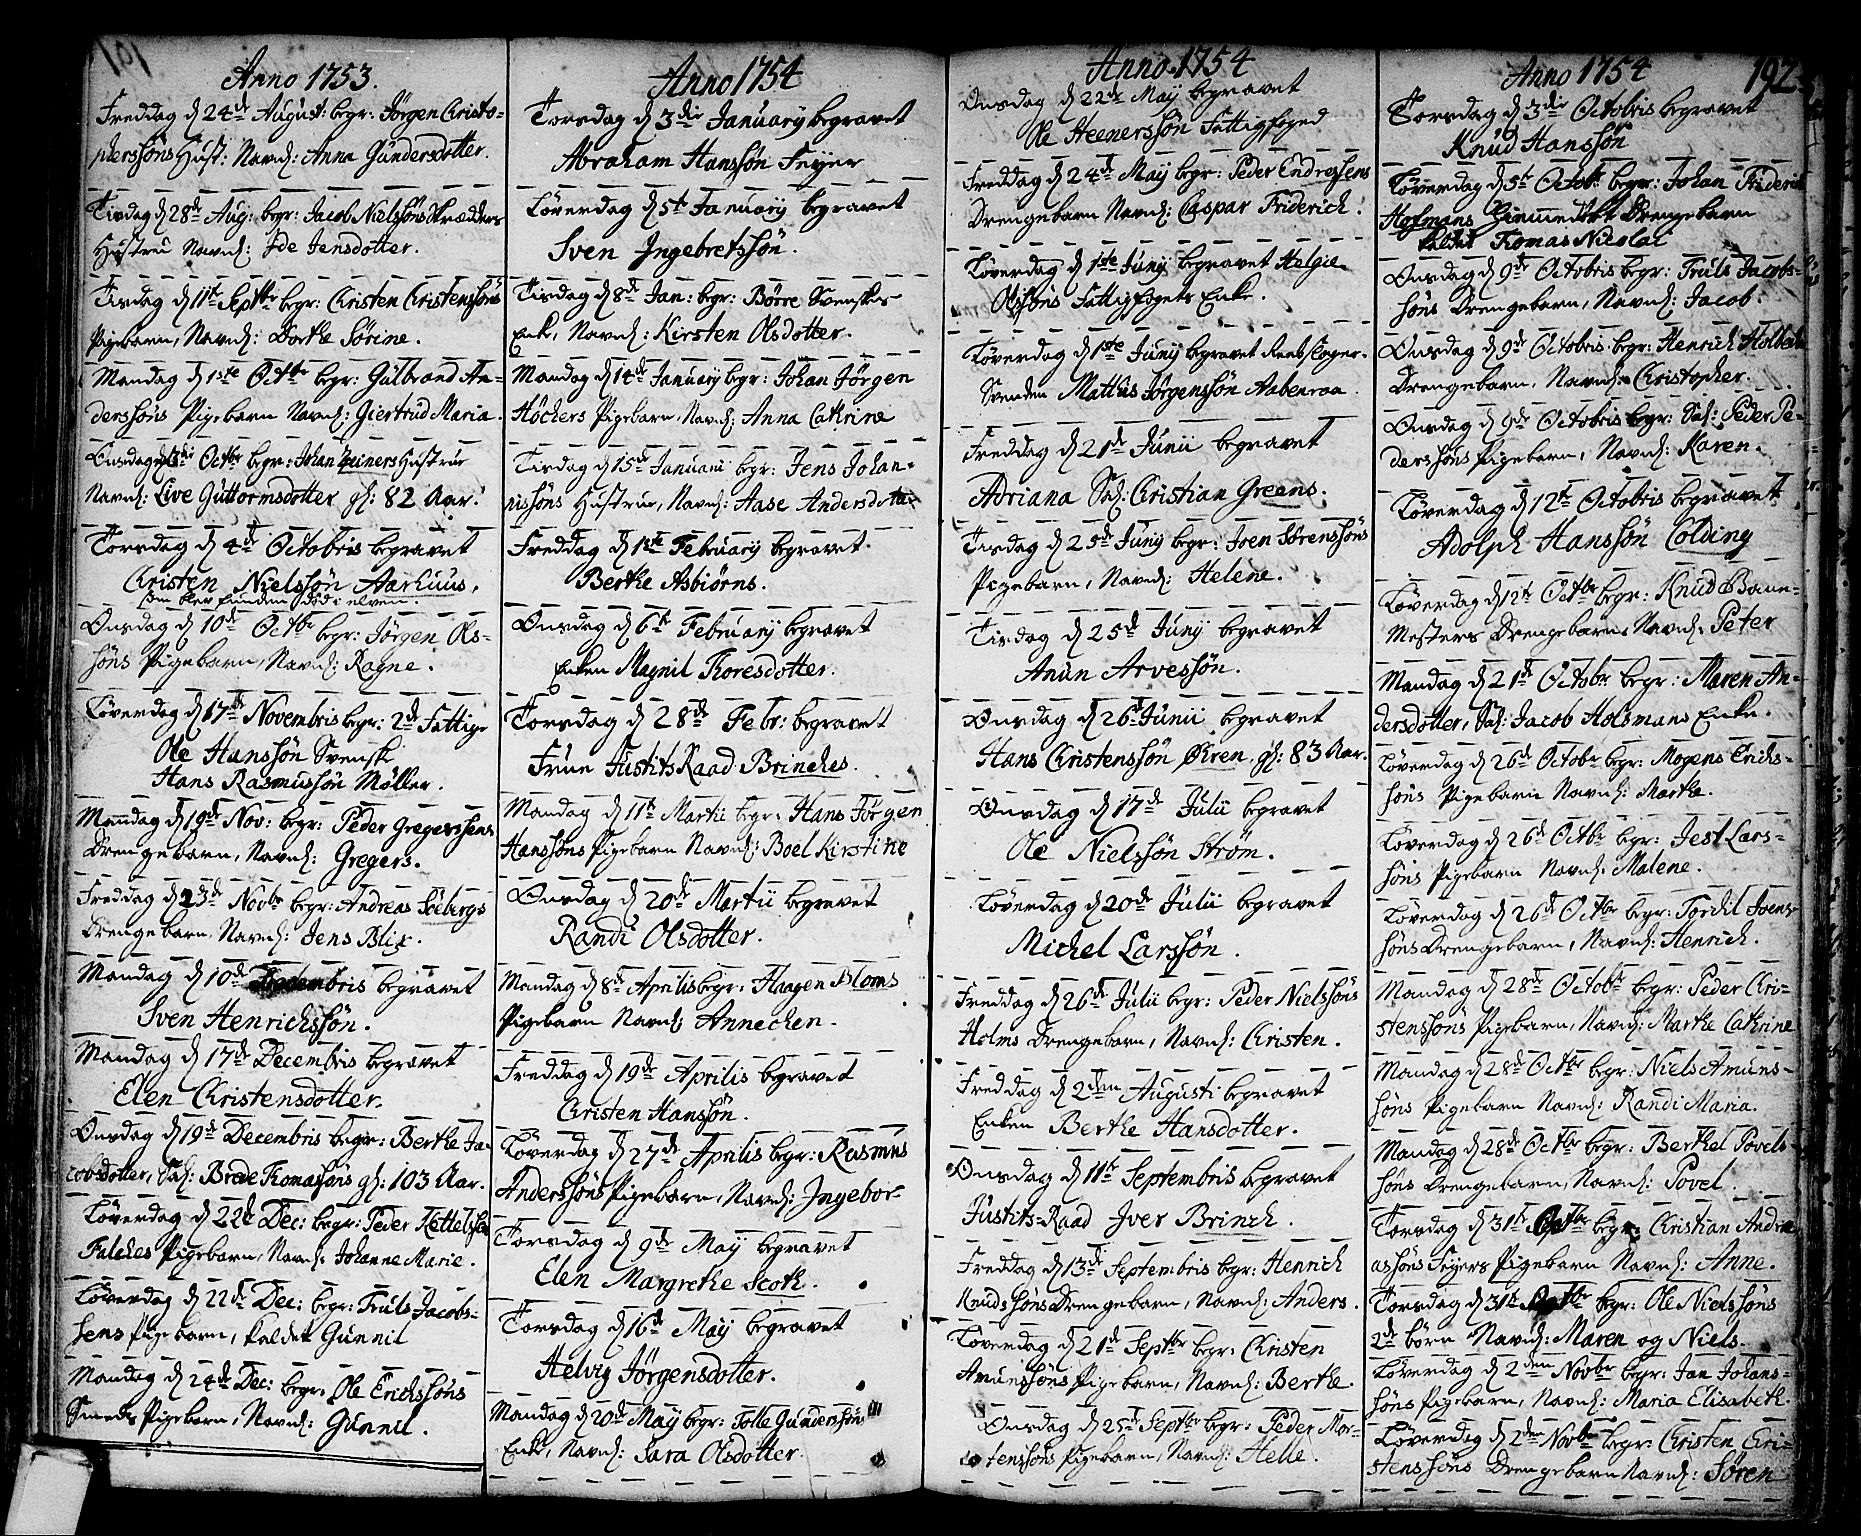 191
Anno 1753.
Freddag d. 24de August: begr: Jörgen Christo-
phersöns Hust: Navnl: Anna Gundersdotter.
Tirdag d. 28de Aug: begr: Jacob Nielsöns Skrædders
Hustru Navnl: Ide Jensdotter.
Tisdag d. 11te Septbr begr: Christen Christensöns
Pigebarn, Navnl: Dorthe Sörine.
Mandag d. 1ste Octbr begr: Gulbrand An-
derssöns Pigebarn Navnl: Giertrud Maria.
Onsdag d. 3die Octbr begr: Johan Reiners Hustrue
Navnl: Live Guttormsdotter gl: 82 Aar.
Torsdag d. 4de Octobris begravet
Christen Nielssön Aarhuus,
som blev funden död i elven.
Onsdag d. 10de Octbr begr: Jörgen Ols-
söns Pigebarn, Navnl: Ragne.
Löverdag d. 17de Novembris begr: 2de Fattige
Ole Hanssön Svensk
Hans Rasmussön Möller.
Mandag d. 19de Nov: begr: Peder Gregerssens
Drengebarn, Navnl: Gregers.
Freddag d. 23de Novbr begr: Andreas Söebergs
Drengebarn, Navnl: Jens Blix.
Mandag d. 10de begravet
Sven Henrichssön.
Mandag d. 17de Decembris begravet
Elen Christensdotter.
Onsdag d. 19de Decembris begr: Berthe Ja-
cobsdotter, Sal: Brede Thomassöns gl: 103 Aar.
Löverdag d. 22de Dec: begr: Peder Kettelsøn
Falches Pigebarn, Navnl: Johanne Marie.
Löverdag d. 22de Dec: begr: Truls Jacobs-
sens Pigebarn, kaldet Gunnil
Mandag d. 24de Dec: begr: Ole Erichssöns
Smeds Pigebarn, Navnl: Gunnil.
Anno 1754
Torsdag d. 3die January begravet
Abraham Hanssön Feyer
Löverdag d. 5te January begravet
Sven Ingebretssön.
Tisdag d. 8de Jan: begr: Börre Svenskes
Enke, Navnl: Kirsten Olsdotter.
Mandag d. 14de January begr: Johan Jörgen
Höchers Pigebarn, Navnl: Anna Cathrina
Tirsdag d. 15de Januarii begr: Jens Johan-
nissöns Hustrue, Navnl: Aase Andersdotter
Freddag d. 1ste February begravet
Berthe Asbiörns.
Onsdag d. 6te February begravet
Enken Magnil Thoresdotter.
Torsdag d. 28de Febr: begravet
Frue Justits Raad Brinches.
Mandag d. 11te Martii begr: Hans Jörgen
Hanssöns Pigebarn Navnl: Boel Kirstine
Onsdag d. 20de Martii begravet
Randi Olsdotter.
Mandag d. 8de Aprilis begr: Haagen Bloms
Pigebarn Navnl: Annechen.
Freddag d. 19de Aprilis begravet
Christen Hanssön.
Löverdag d. 27de Aprilis begr: Rasmus
Anderssöns Pigebarn, Navnl: Ingebor-
Torsdag d. 9de May begravet
Elen Margrethe Scoth.
Torsdag d. 16de May begravet
Helvig Jörgensdotter.
Mandag d. 20de May begr: Tolle Gunderssöns
Enke, Navnl: Sara Olsdotter.
Anno 1754
Onsdag d. 22de May begravet
Ole Steenerssön Fattigfoged
Freddag d. 24de May begr: Peder Endressens
Drengebarn Navnl: Caspar Friderich.
Löverdag d. 1ste Juny begravet Helgie
Fattigfogets Enke.
Löverdag d. 1ste Juny begravet
Svenden Mathis Jörgenssön Aabenraa.
Freddag d. 21de Junii begravet
Adriana Sal: Christian Greens.
Tisdag d. 25de Juny begr: Joen Sörenssöns
Pigebarn, Navnl: Helene.
Tirsdag d. 25de Juny begravet
Anun Arvessön.
Onsdag d. 26de Junii begravet
Hans Christenssön Ören, gl: 83 Aar.
Onsdag d. 17de Julii begravet
Ole Nielssön Ström.
Löverdag d. 20de Julii begravet
Michel Larssön.
Freddag d. 26de Julii begr: Peder Nielssöns
Holms Drengebarn, Navnl: Christen.
Freddag d. 2den Augusti begravet
Enken Berthe Hansdotter.
Onsdag d. 11te Septembris begravet
Justits-Raad Iver Brinch.
Freddag d. 13de Septembris begr: Henrich
Knudssöns Drengebarn, Navnl: Anders.
Löverdag d. 21de Septbr begr: Christen
Amunssöns Pigebarn, Navnl: Berthe.
Onsdag d. 25de Septbr begr: Peder Mor-
tenssöns Pigebarn, Navnl: Helle.
Anno 1754
192
Torsdag d. 3die Octobris begravet
Knud Hanssön
Löverdag d. 5te Octobr begr: Johan Friderich
Hofmans Drengebarn
kaldet Thomas Nicolai
Onsdag d. 9de Octobris begr: Truls Jacobs-
söns Drengebarn, Navnl: Jacob.
Onsdag d. 9de Octobris begr: Henrich
Drengebarn, Navnl: Christopher.
Onsdag d. 9de Octobris begr: Sal: Peder Pe-
derssöns Pigebarn, Navnl: Karen.
Löverdag d. 12te Octobris begravet
Adolph Hanssön Colding
Löverdag d. 12te Octbr begr: Knud
Mesters Drengebarn Navnl: Peter
Mandag d. 21de Octobr begr: Maren An-
dersdotter, Sal: Jacob Holsmans Enke.
Löverdag d. 26de Octobr begr: Mogens Erichs-
söns Pigebarn Navnl: Marthe.
Löverdag d. 26de Octbr begr: Jest Lars-
söns Pigebarn Navnl: Malene.
Löverdag d. 26de Octbr begr: Tordil Joens-
söns Drengebarn, Navnl: Henrich.
Mandag d. 28de Octobr begr: Peder Chri-
stenssöns Pigebarn, Navnl: Marthe Cathrine
Mandag d. 28de Octbr begr: Niels Amuns-
söns Pigebarn Navnl: Randi Maria.
Mandag d. 28de Octbr begr: Berthel Povels-
söns Drengebarn, Navnl: Povel.
Torsdag d. 31te Octbr begr: Christian Andre-
assöns Feyers Pigebarn Navnl: Anne.
Torsdag d. 31te Octbr begr: Ole Nielssöns
2de börn Navnl: Maren og Niels.
Löverdag d. 2den Novbr begr: Jan Johans-
söns Pigebarn, Navnl: Maria Elisabeth.
Löverdag d. 2den Novbr begr: Christen Chri-
stenssöns Drengebarn Navnl: Sören